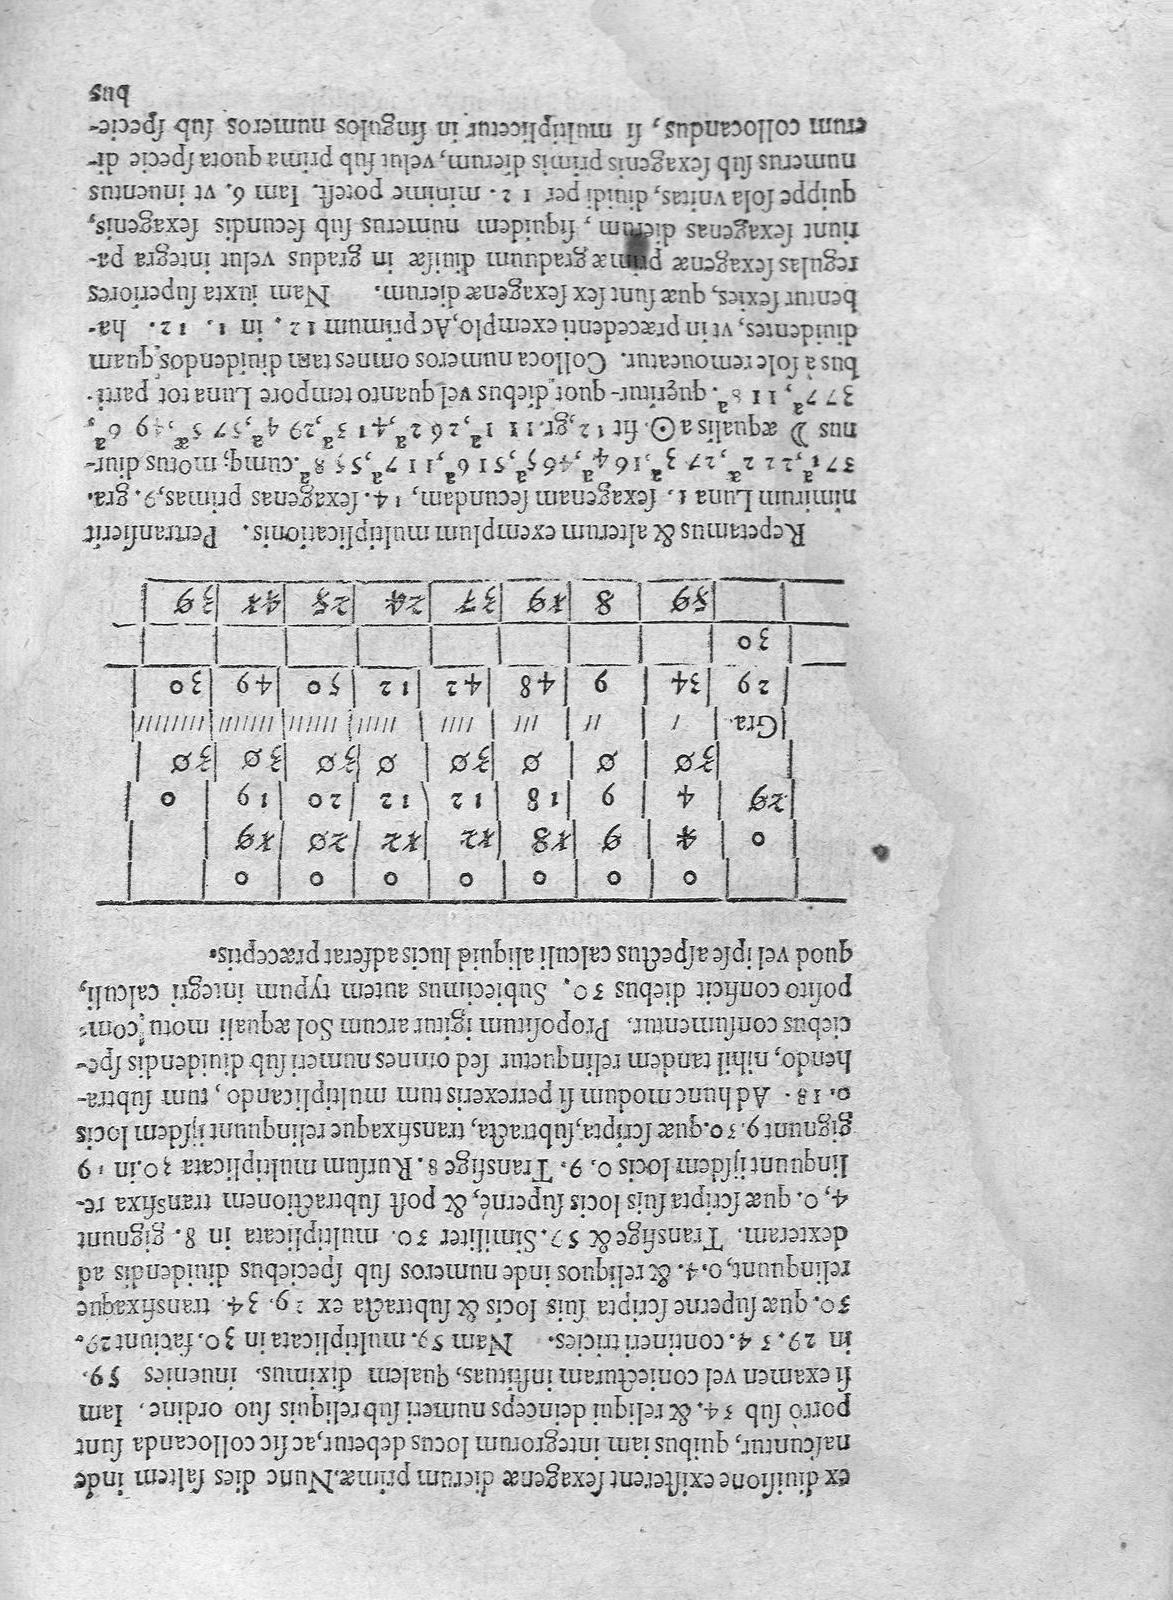 ex diuiſione exiſterent ſexagenæ dierum primæ. Nunc dies ſaltem inde
naſcuntur, quibus iam integrorum locus debetur, ac ſic collocanda ſunt
porrò ſub 34. & reliqui deinceps numeri ſub reliquis ſuo ordine. Iam
ſi examen vel coniecturam inſtituas, qualem diximus. inuenies 59.
in 29. 34. contineri tricies. Nam 59. multiplicata in 30. faciunt 29.
30. quæ ſuperne ſcripta ſuis locis & ſubtracta ex 29. 34. transfixaque
relinquunt, 0. 4. & reliquos inde numeros ſub ſpeciebus diuidendis ad
dexteram. Transfige & 59. Similiter 30. multiplicata in 8. gignunt
4, 0. quæ ſcripta ſuis locis ſupernè, & poſt ſubtractionem transfixa re-
linquunt ijſdem locis 0. 9. Transfige 8. Rurſum multiplicata 30. in 19
gignunt 9. 30. quæ ſcripta, ſubtracta, transfixaque relinquunt ijſdem locis
0. 18. Ad hunc modum ſi perrexeris tum multiplicando, tum ſubtra-
hendo, nihil tandem relinquetur ſed omnes numeri ſub diuidendis ſpe-
ciebus conſumentur. Propoſitum igitur arcum Sol æquali motu com-
poſito conficit diebus 30. Subiecimus autem typum integri calculi,
quod vel ipſe aſpectus calculi aliquid lucis adferat præceptis.
0 0 0 0 0 0 0
0 4 9 18 12 12 20 19
29 4 9 18 12 12 20 19 0
30 0 0 30 0 30 30 30
Gra. / // /// //// ///// ////// /////// ////////
29 34 9 48 42 12 50 49 30
30
59 8 19 37 24 25 41 39
Repetamus & alterum exemplum multiplicationis. Pertranſierit
nimirum Luna 1. ſexagenam ſecundam, 14. ſexagenas primas, 9. gra.
37 1ª, 22 2ª, 27 3ª, 16 4ª, 46 5ª, 51 6ª, 11 7ª, 55 8ª. cumq; motus diur-
nus ☽ æqualis a ☉. ſit 12, gr. 11 1ª, 26 2ª, 41 3ª, 29 4ª, 57 5ª, 49 6ª,
37 7ª, 11 8ª. quęritur quot diebus vel quanto tempore Luna tot parti-
bus à ſole remoueatur. Colloca numeros omnes tam diuidendos quam
diuidentes, vt in præcedenti exemplo, Ac primum 12. in 1. 12. ha-
bentur ſexies, quæ ſunt ſex ſexagenæ dierum. Nam iuxta ſuperiores
regulas ſexagenæ primæ graduum diuiſæ in gradus velut integra pa-
riunt ſexagenas dierum, ſiquidem numerus ſub ſecundis ſexagenis,
quippe ſola vnitas, diuidi per 12. minime poteſt. Iam 6. vt inuentus
numerus ſub ſexagenis primis dierum, velut ſub prima quota ſpecie di-
erum collocandus, ſi multiplicetur in ſingulos numeros ſub ſpecie-
bus